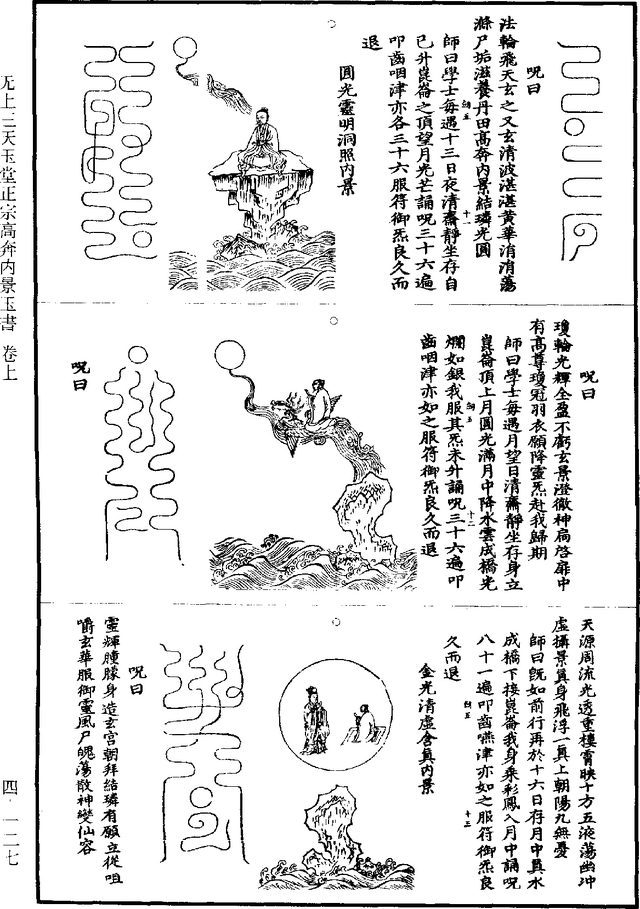 呪曰
法輪飛天玄之又玄清波湛湛黃華涓涓蕩
滌尸垢滋養丹田高奔內景結璘光圓
師曰學士每遇十三日夜清齋靜坐存自
己升崑崙之頂望月光芒誦呪三十六遍
叩齒咽津亦各三十六服符御炁良久而
退
圓光靈明洞照內景
呪曰
瓊輪光輝全盈不虧玄景澄徹神扃啓扉中
有高尊瓊冠羽衣願降靈炁赴我歸期
師曰學士每遇月望日清齋靜坐存身立
崑崙頂上月圓光滿月中降水雲成橋光
爛如銀我服其炁未升誦呪三十六遍叩
齒咽津亦如之服符御炁良久而退
呪曰
天源周流光透重樓霄映十方五液蕩幽沖
虛攝景真身飛浮一真上朝陽九無憂
師曰既如前行再於十六日存月中真水
成橋下接崑崙我身乘彩鳳入月中誦呪
八十一遍叩齒嚥津亦如之服符御炁良
久而退
金光清虛含真內景
呪曰
靈輝朣朦身造玄宮朝拜結璘有願立從咀
嚼玄華服御靈風尸魄蕩散神變仙容
无上三天玉堂正宗高奔內景玉書 卷上
四·一二七